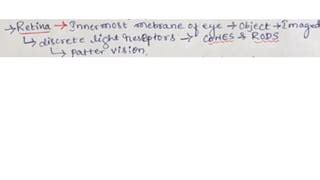 → Retina → Innermost mebrane of eye → Object → Imaged
↳ discrete light receptors → CONES & RODS
↳ Patter vision.